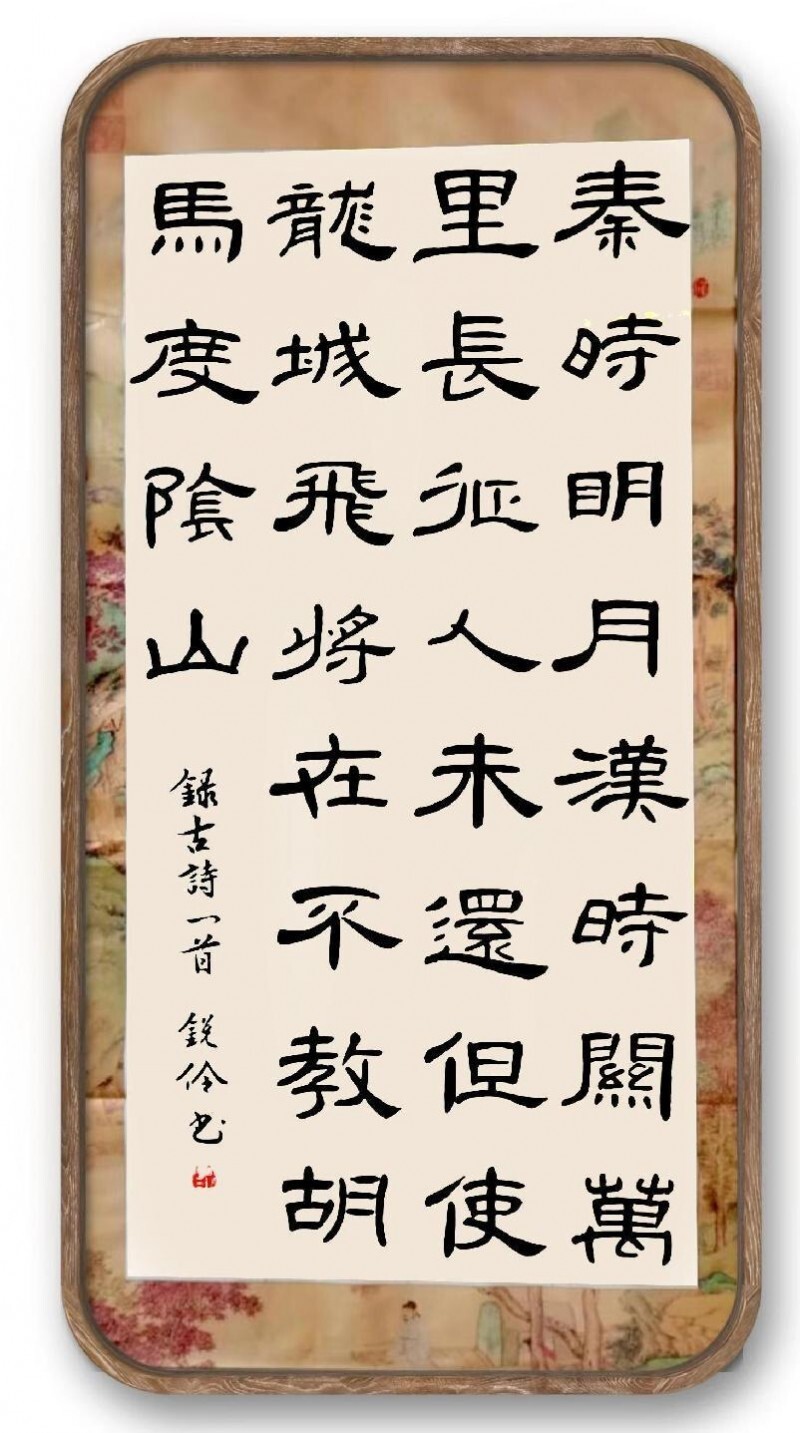 秦時明月漢時關萬
里長征人未還但使
龍城飛將在不教胡
馬度陰山
録古詩一首 銳伶书